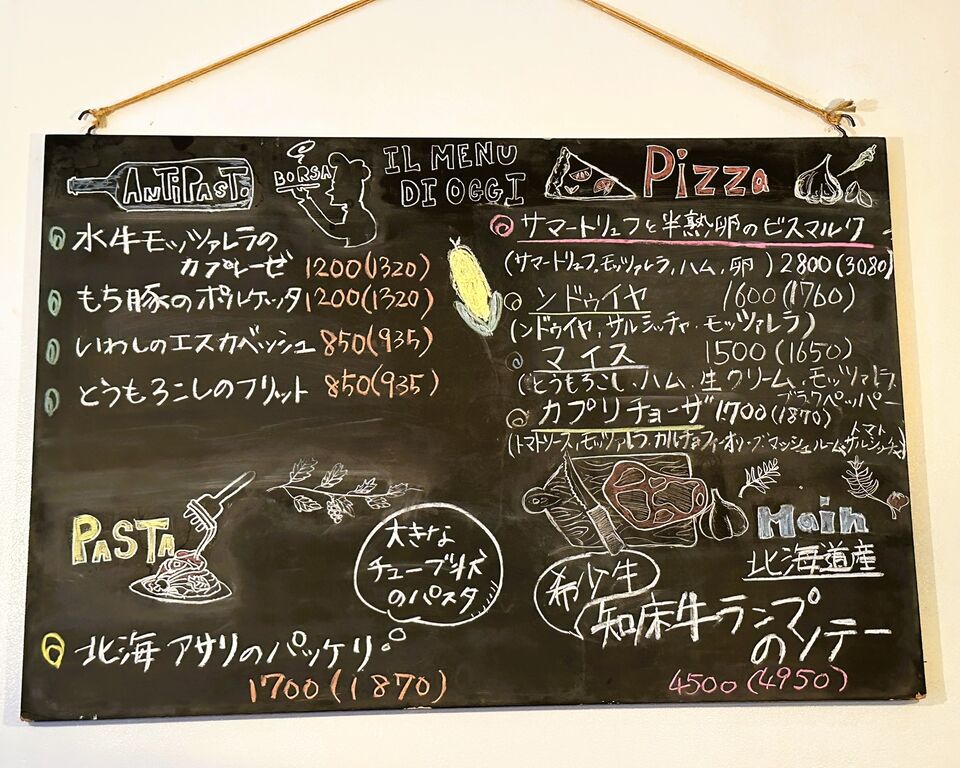 IL MENU
DI OGGI
BORSA
ANTIPASTO
水牛モッツァレラの
カプレーゼ 1200(1320)
もち豚のポルケッタ 1200(1320)
いわしのエスカベッシュ 850(935)
とうもろこしのフリット 850(935)
PASTA
大きな
チューブ状
のパスタ
北海アサリのパッケリ
1700(1870)
Pizza
サマートリュフと半熟卵のビスマルク
(サマートリュフ、モッツァレラ、ハム、卵) 2800(3080)
ンドゥイヤ 1600(1760)
(ンドゥイヤ、サルシッチャ、モッツァレラ)
マイス 1500(1650)
(とうもろこし、ハム、生クリーム、モッツァレラ、
ブラックペッパー
カプリチョーザ 1700(1870)
(トマトソース、モッツァレラ、カルチョーフィ、オリーブ、マッシュルーム、
トマト
サルシッチャ)
Main
北海道産
希少生
知床牛ランプ
のソテー
4500(4950)